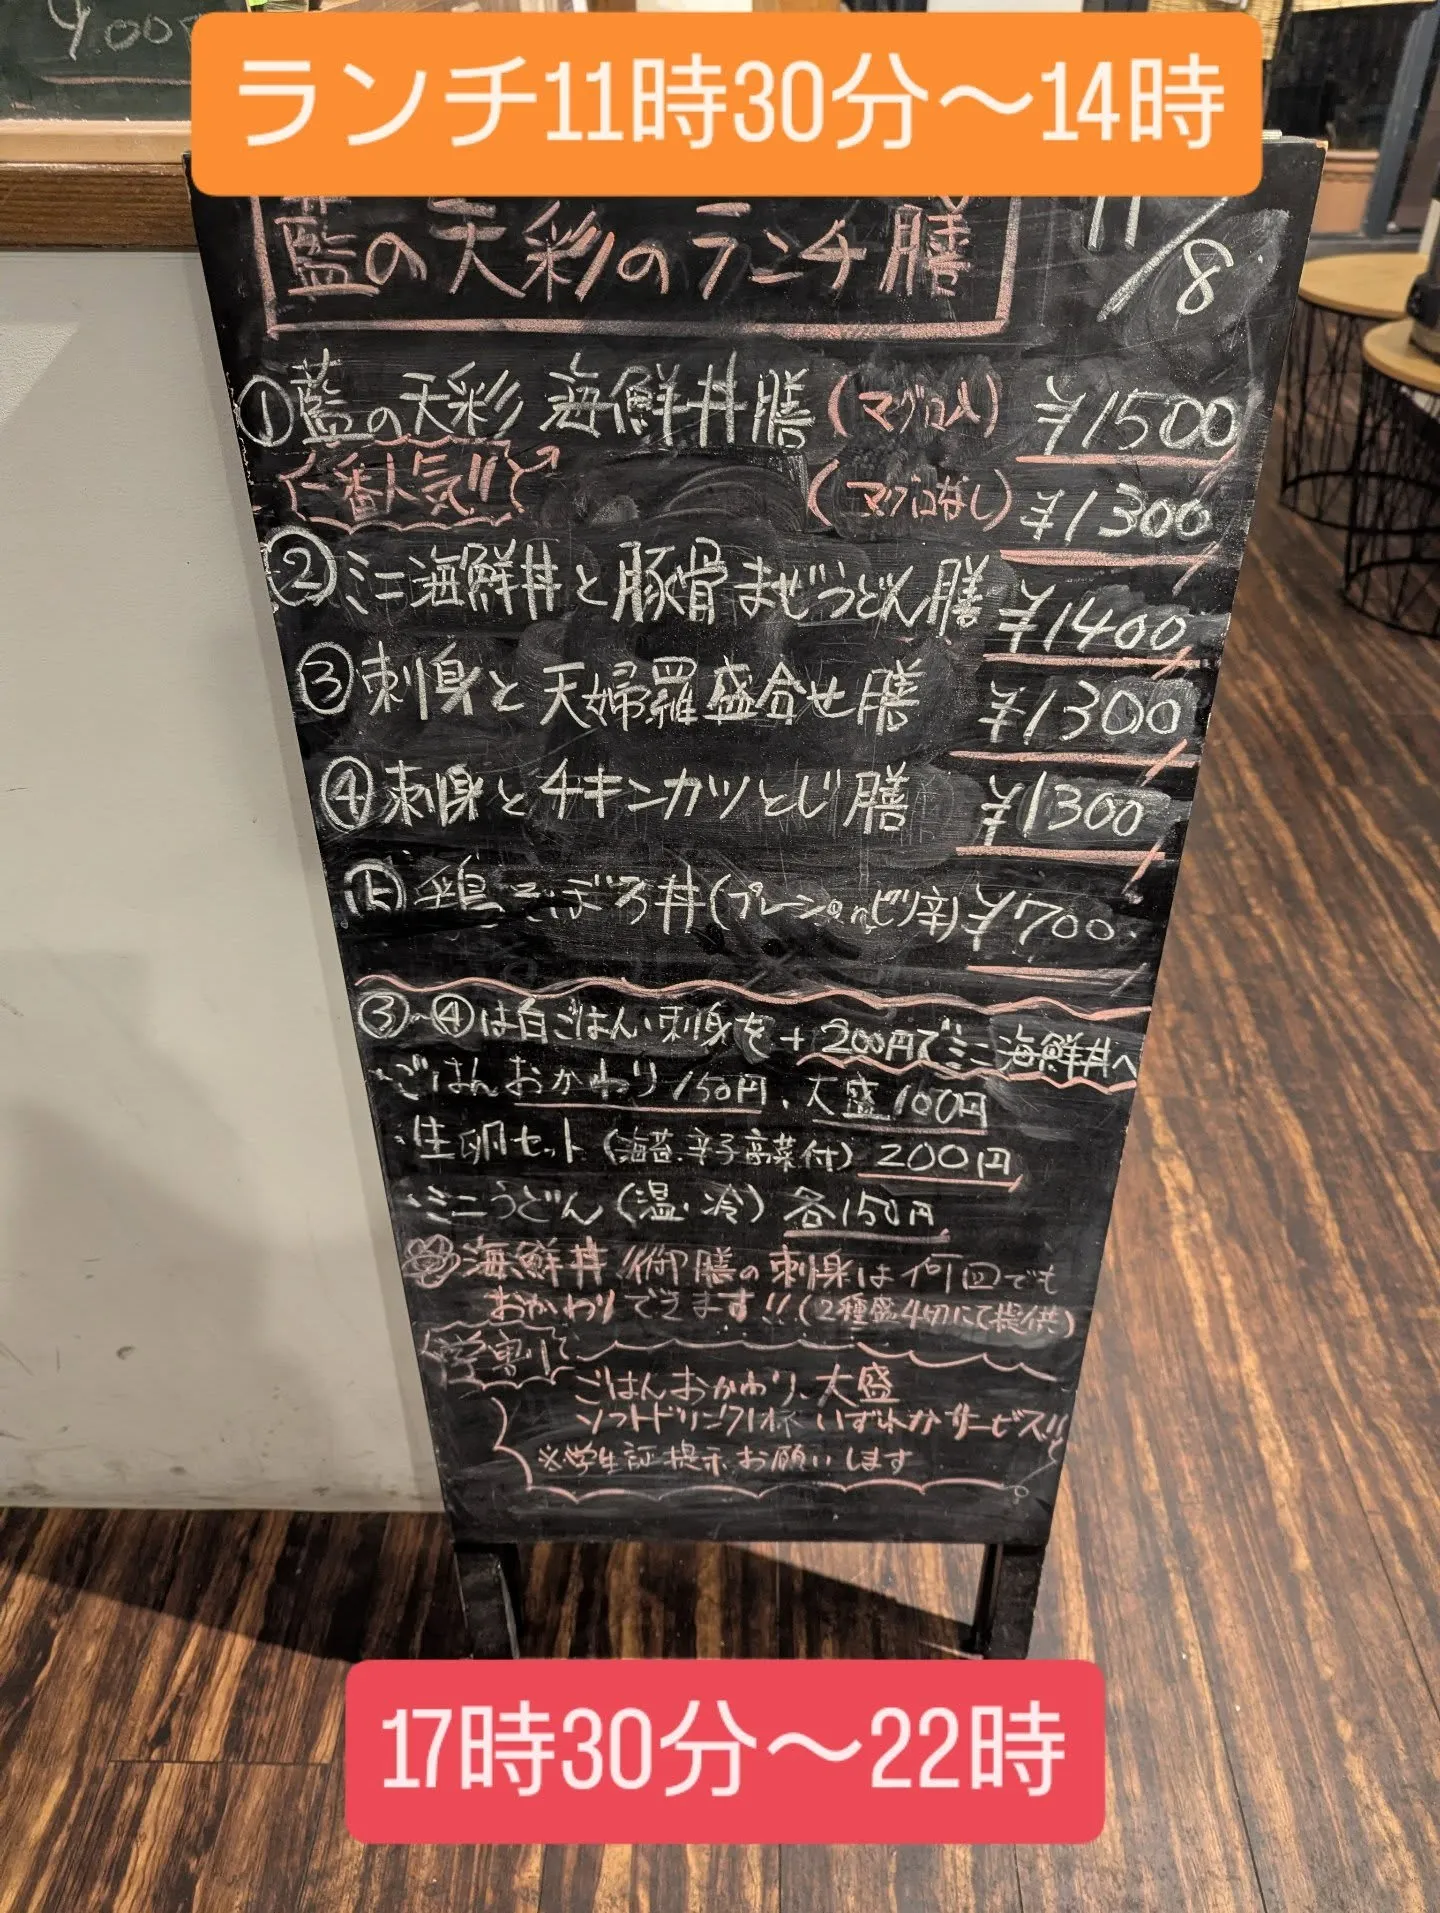 ランチ11時30分〜14時
藍の天彩のランチ膳 11/8
①藍の天彩 海鮮丼膳(マグロ入) ¥1500
一番人気!! (マグロなし) ¥1300
②ミニ海鮮丼と豚骨まぜうどん膳 ¥1400
③刺身と天婦羅盛合せ膳 ¥1300
④刺身とチキンカツとじ膳 ¥1300
鶏そぼろ丼(プレーンorピリ辛) ¥700
③〜④は白ごはん、刺身を+200円でミニ海鮮丼へ
・ごはんおかわり150円、大盛100円
・生卵セット(海苔、辛子高菜付)200円
・ミニうどん(温・冷)各150円
海鮮丼、御膳の刺身は何回でも
おかわりできます!!(2種盛4切にて提供)
学割
ごはんおかわり、大盛
ソフトドリンク1杯 いずれかサービス!!
※学生証提示お願いします
17時30分〜22時